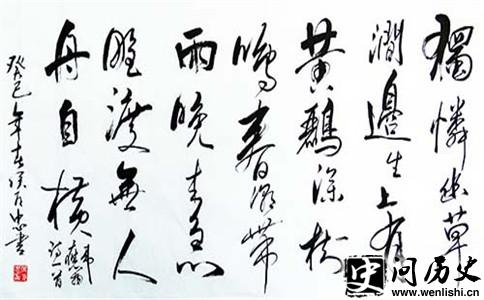 獨憐幽草
澗邊生上有
黄鸝深樹
鳴春潮帶
雨晚来急
野渡無人
舟自横
韋應物詩一首
癸巳年春忠書
史 问历史
www.wenlishi.cn